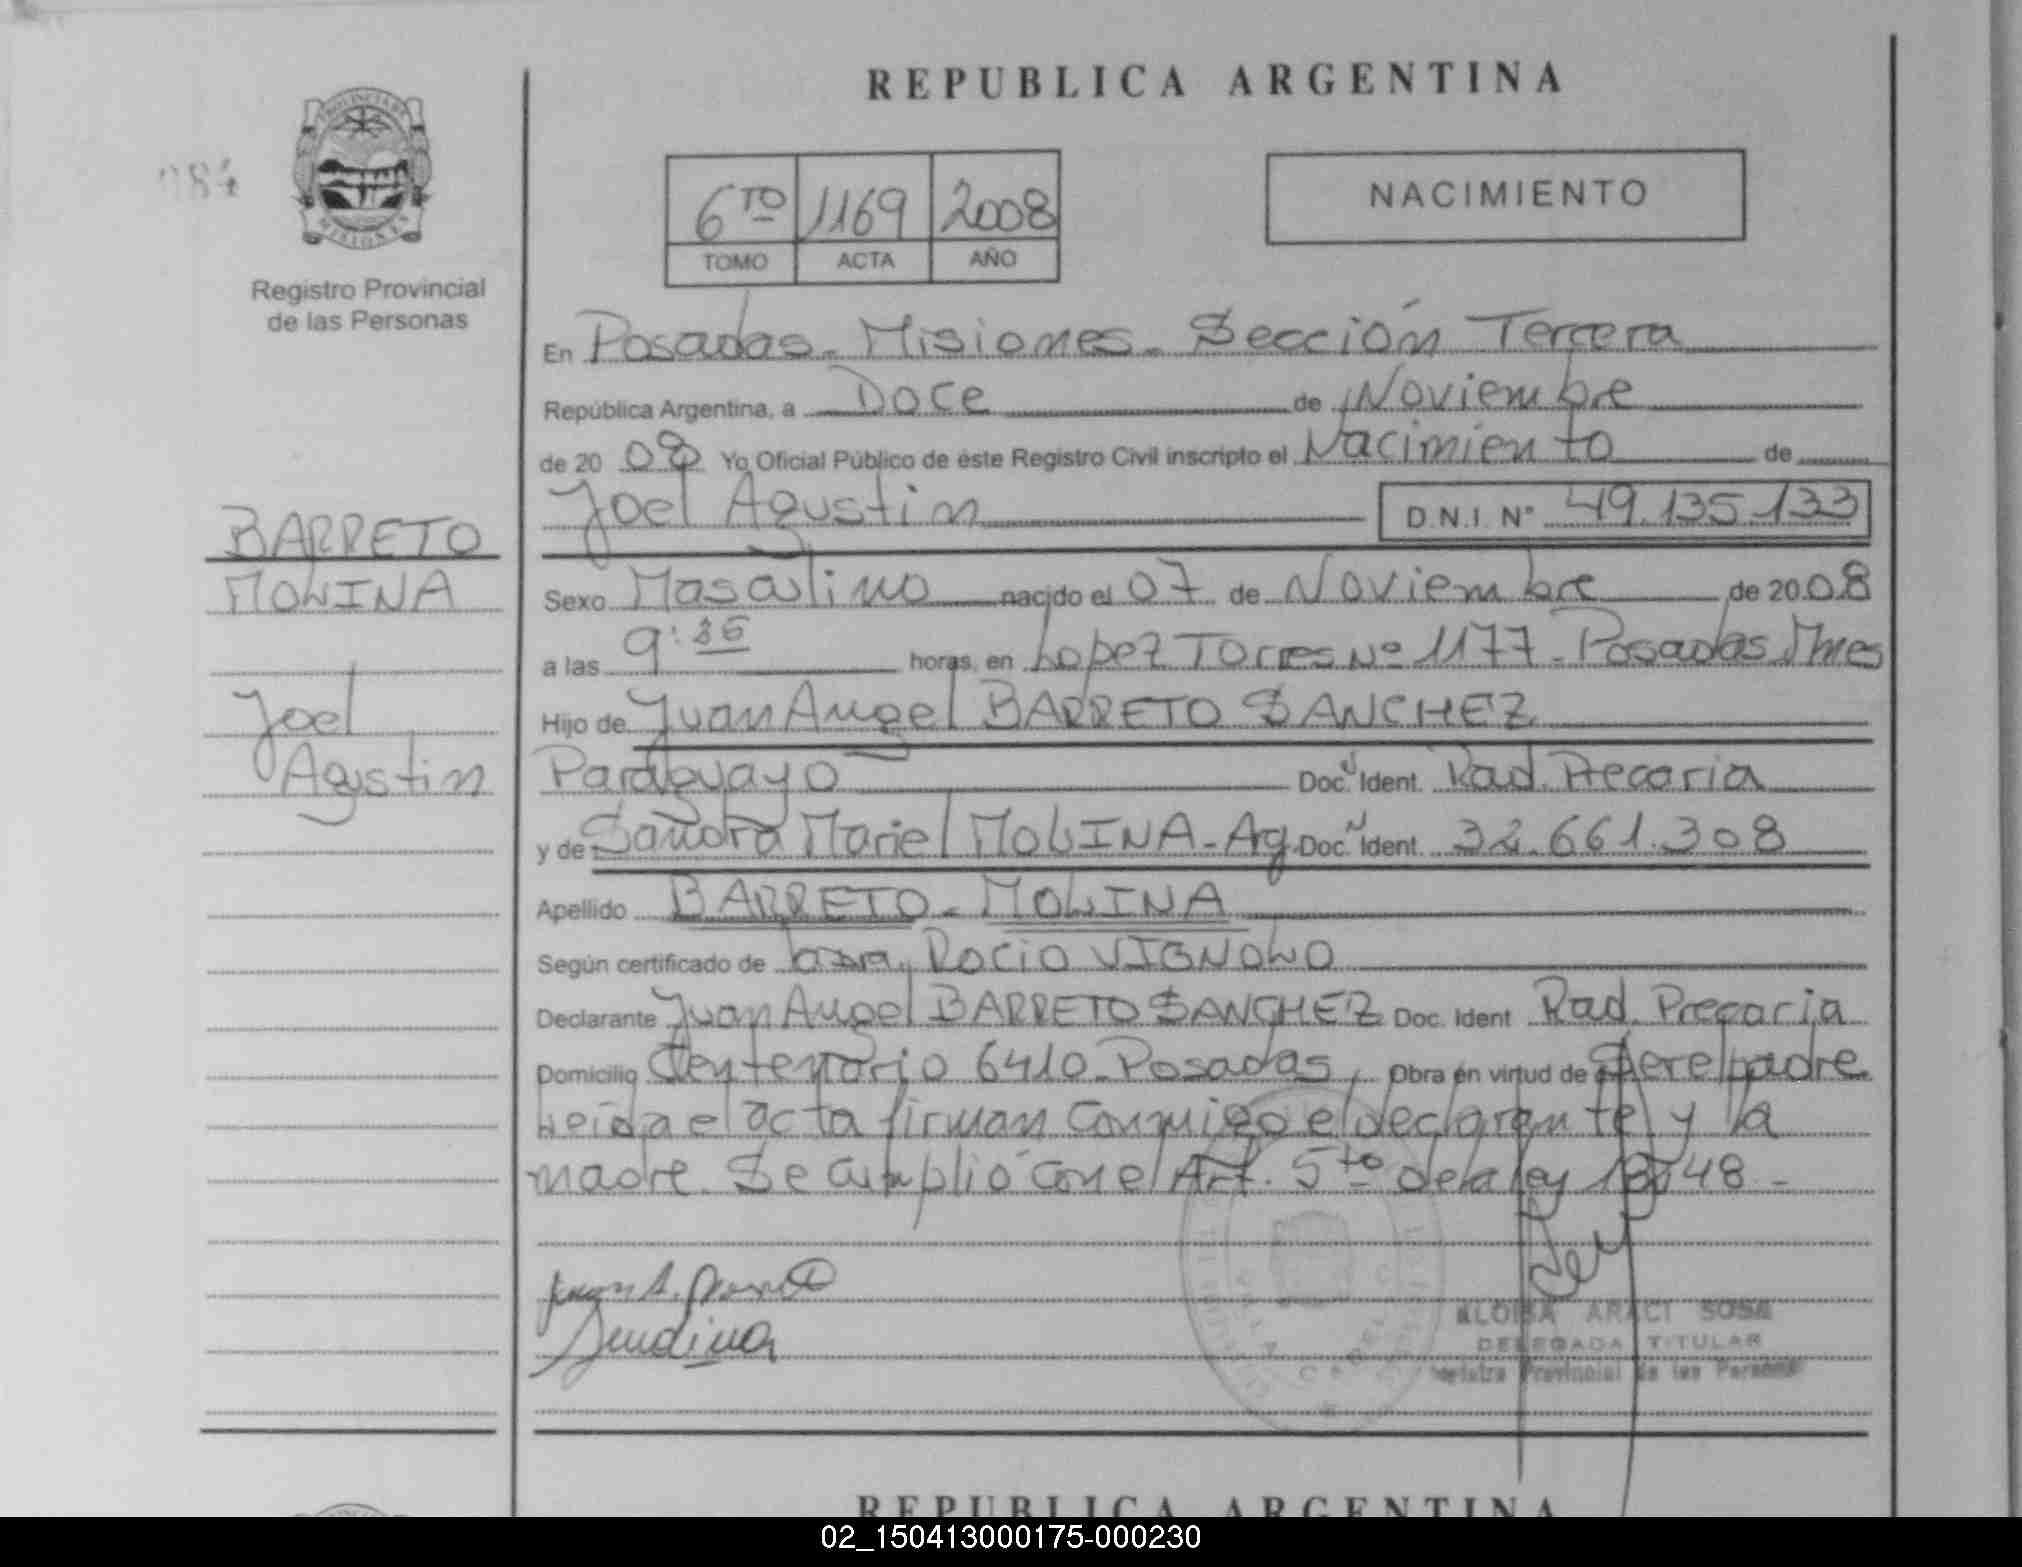 REPUBLICA ARGENTINA
084
PROVINCIA DE MISIONES
Registro Provincial
de las Personas
6TO 1169 2008
TOMO ACTA AÑO
NACIMIENTO
En Posadas - Misiones - Sección Tercera
República Argentina, a Doce de Noviembre
de 20 08 Yo Oficial Público de éste Registro Civil inscripto el Nacimiento de
Joel Agustin D.N.I. N° 49.135.133
BARRETO
MOLINA
Joel
Agustin
Sexo Masculino nacido el 07 de Noviembre de 20 08
a las 9:35 horas, en Lopez Torres Nº 1177 - Posadas Mnes
Hijo de Juan Angel BARRETO SANCHEZ
Paraguayo Doc. Ident. Rad. Precaria
y de Sandra Mariel MOLINA - Ag. Doc. Ident. 32.661.308
Apellido BARRETO - MOLINA
Según certificado de Rocio VIGNOLO
Declarante Juan Angel BARRETO SANCHEZ Doc. Ident Rad. Precaria
Domicilio Centenario 6410 - Posadas, Obra en virtud de Ser el padre
Leida el acta firman conmigo el declarante y la
madre. Se cumplió con el Art. 5to de la ley 18248 -
ALOISA ARACI SOSA
DELEGADA TITULAR
Registro Provincial de las Personas
REPUBLICA ARGENTINA
02_150413000175-000230